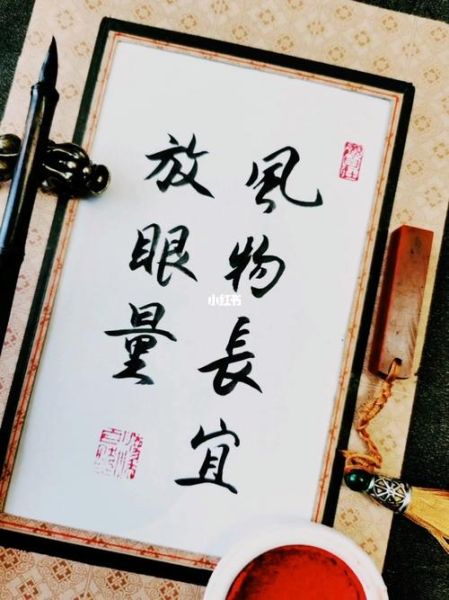 風物長宜
放眼量
小红书